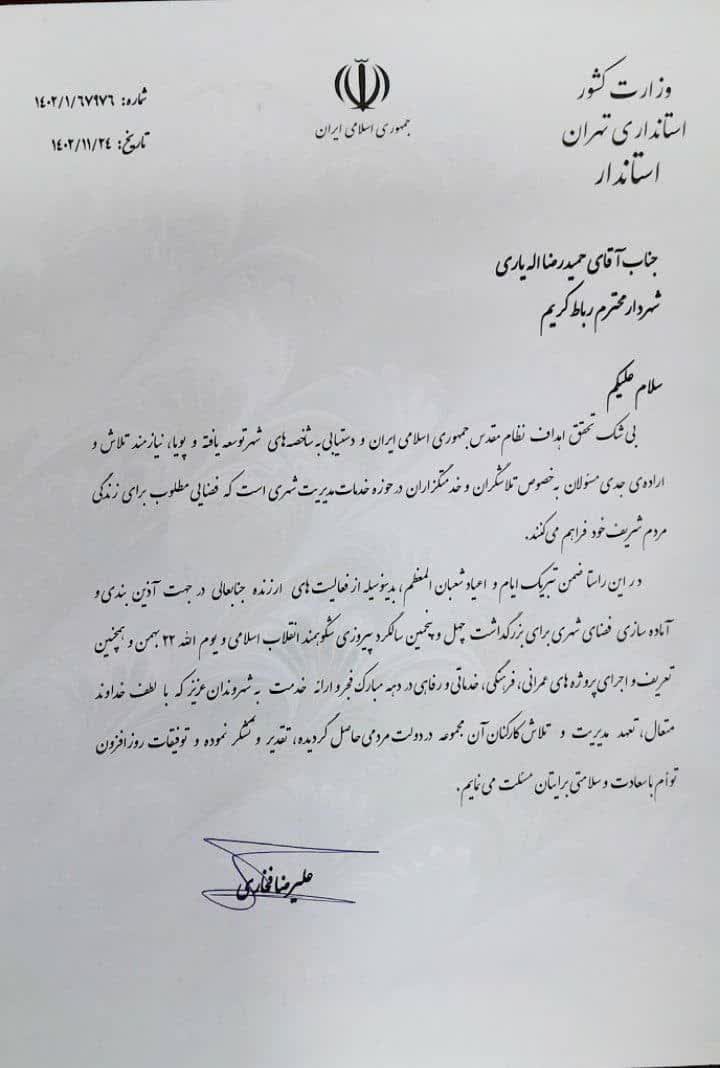 وزارت کشور
استانداری تهران
استاندار
جمهوری اسلامی ایران
شماره: ۱۴۰۲/۱/۶۷۹۷۶
تاریخ: ۱۴۰۲/۱۱/۲۴
جناب آقای حمیدرضا اله یاری
شهردار محترم رباط کریم
سلام علیکم
بی شک تحقق اهداف نظام مقدس جمهوری اسلامی ایران و دستیابی به شاخصه های شهر توسعه یافته و پویا، نیازمند تلاش و
اراده‌ی جدی مسئولان به خصوص تلاشگران و خدمتگزاران در حوزه خدمات مدیریت شهری است که فضایی مطلوب برای زندگی
مردم شریف خود فراهم می‌کنند.
در این راستا ضمن تبریک ایام و اعیاد شعبان المعظم، بدینوسیله از فعالیت های ارزنده جنابعالی در جهت آذین بندی و
آماده سازی فضای شهری برای بزرگداشت چهل و پنجمین سالگرد پیروزی شکوهمند انقلاب اسلامی و یوم الله ۲۲ بهمن و همچنین
تعریف و اجرای پروژه های عمرانی، فرهنگی، خدماتی و رفاهی در دهه مبارک فجر و ارائه خدمت به شهروندان عزیز که با لطف خداوند
متعال، تعهد مدیریت و تلاش کارکنان آن مجموعه در دولت مردمی حاصل گردیده، تقدیر و تشکر نموده و توفیقات روز افزون
توأم با سعادت و سلامتی برایتان مسئلت می نمایم.
علیرضا فخاری